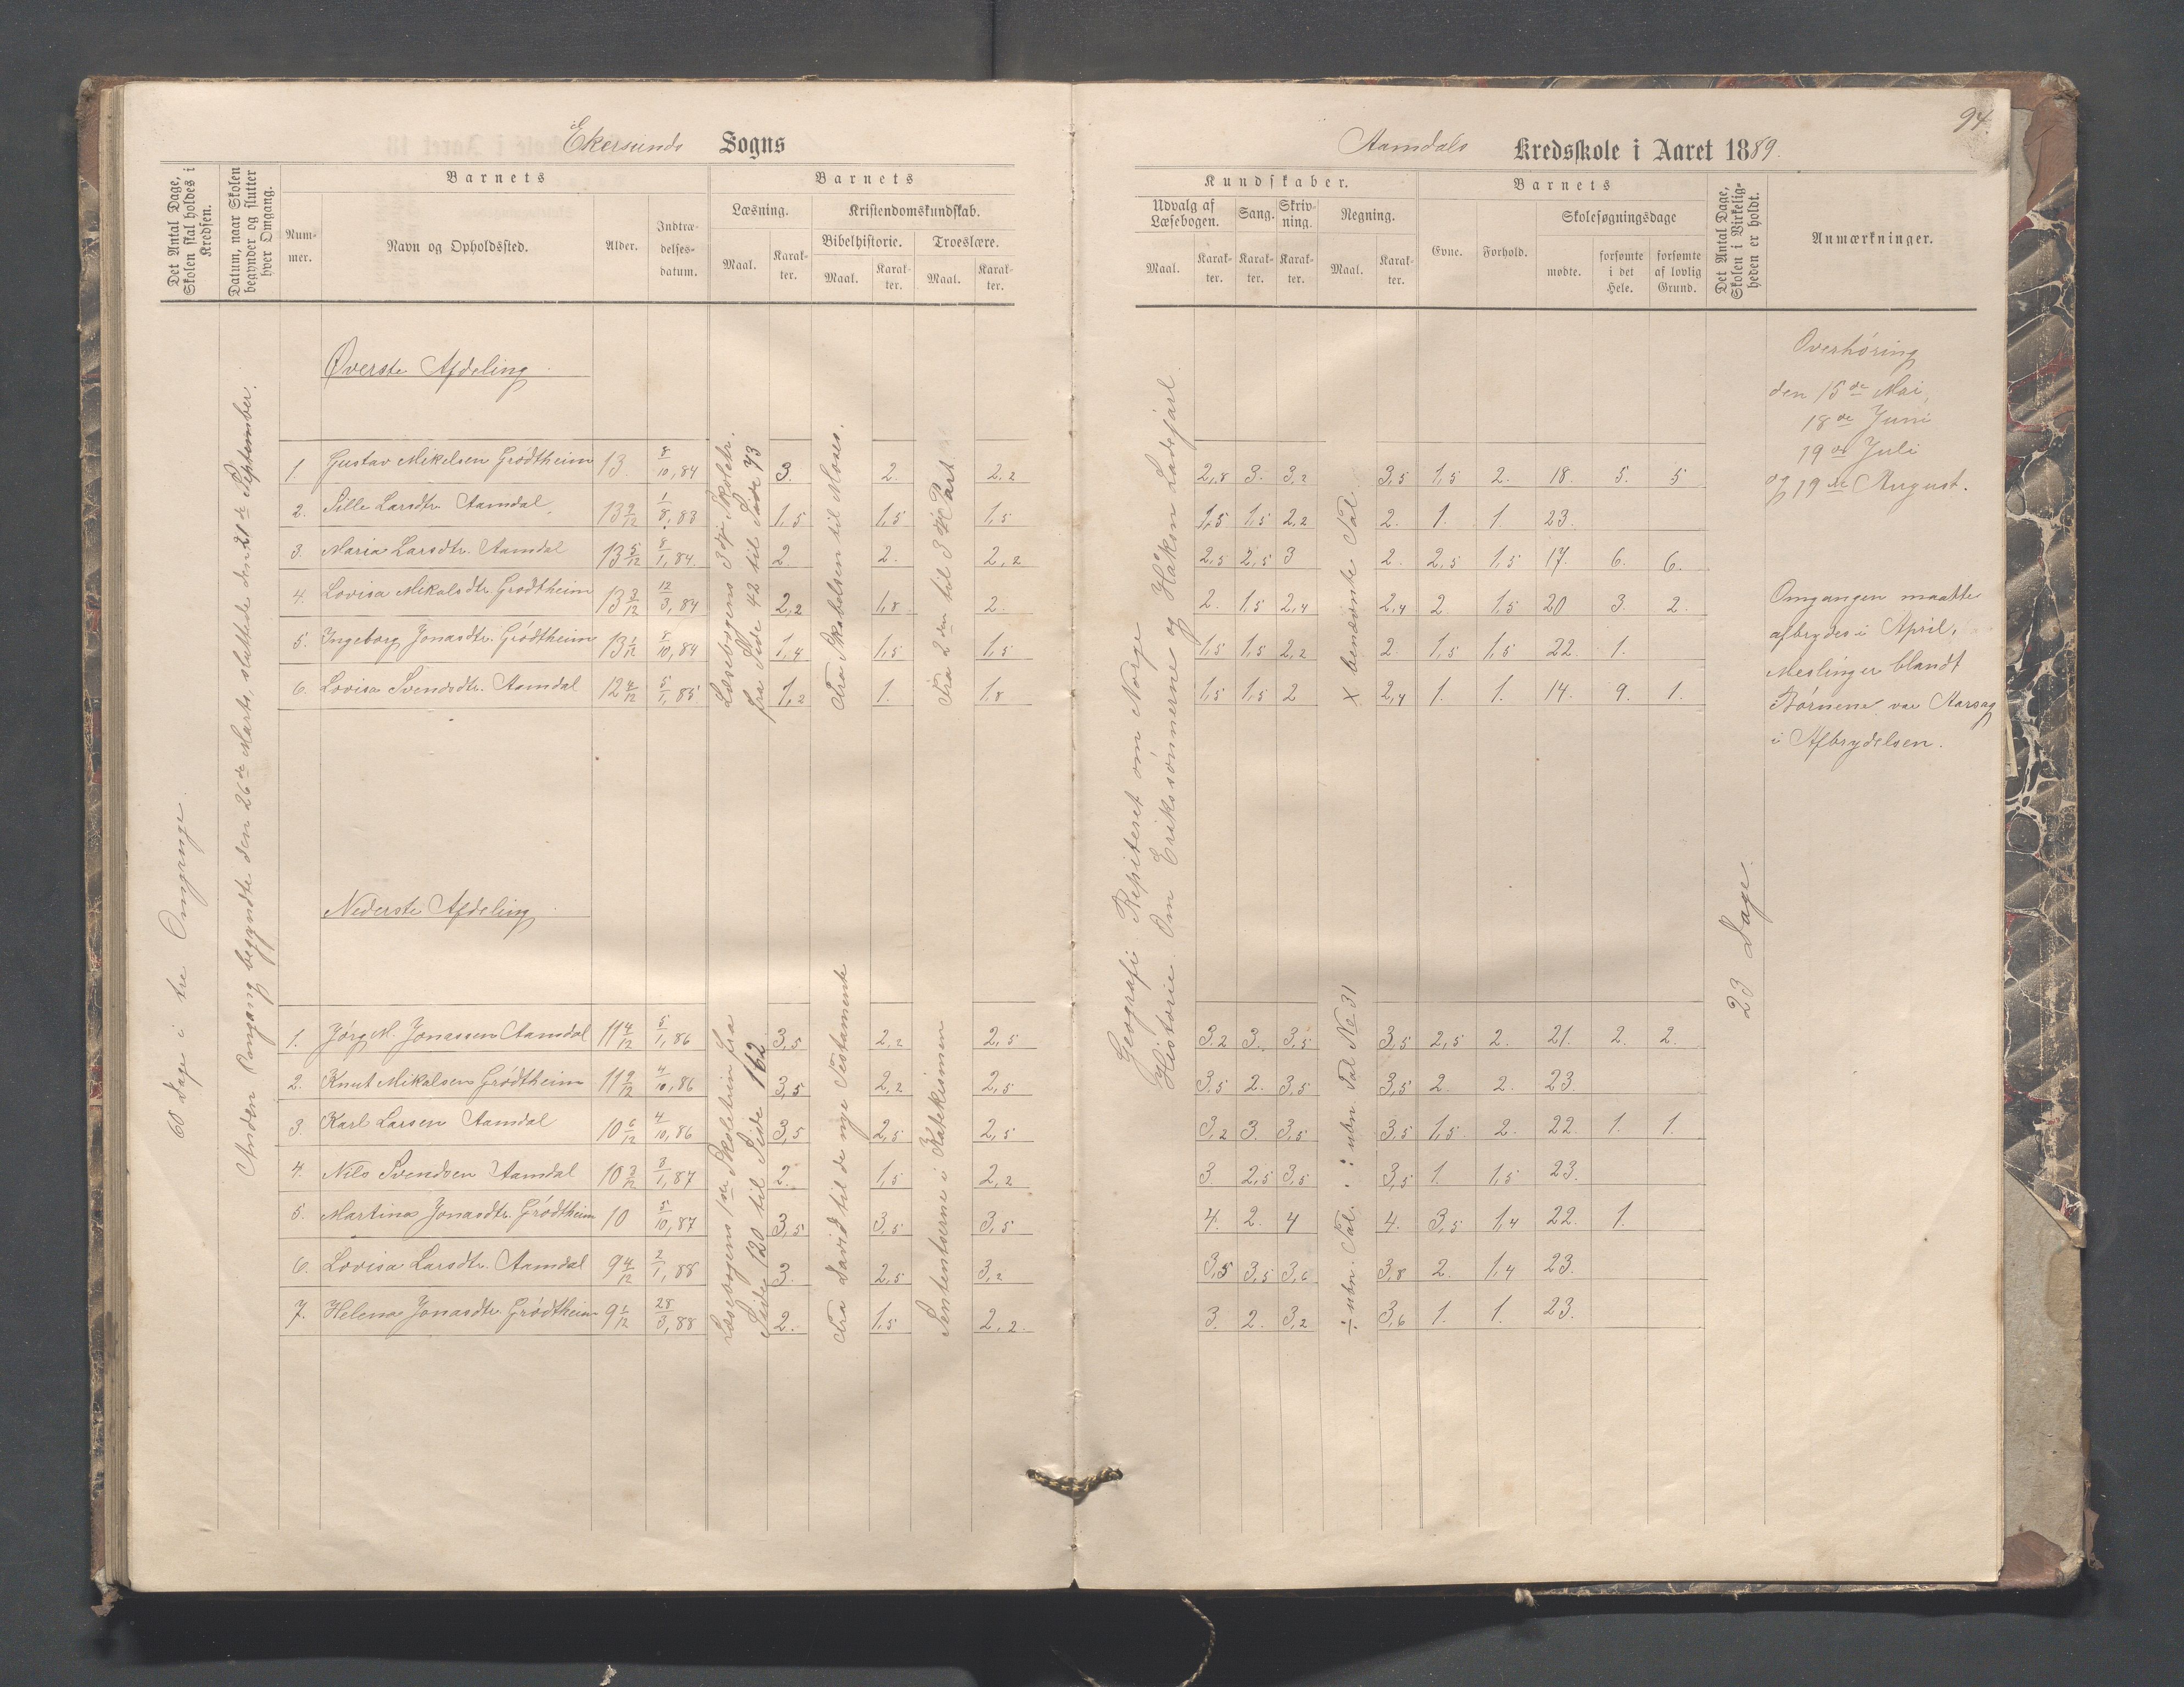 Ekersunds Sogns
Det Antal Dage, Skolen skal holdes i Kredsen.
Datum, naar Skolen begynder og slutter hver Omgang.
Barnets
Num-mer.
Navn og Opholdssted.
Alder.
Indtræ-delses-datum.
Barnets
Læsning.
Maal.
Karak-ter.
Kristendomskundskab.
Bibelhistorie.
Maal.
Karak-ter.
Troeslære.
Maal.
Karak-ter.
60 Dage i tre Omgange.
Anden Omgang begyndte den 26de Marts, sluttede den 21de September.
Øverste Afdeling.
Læsebogens 3dje Skoletr. fra Side 42 til Side 73
Fra Skabelsen til Moses.
Fra 2den til 3die Part
1. Gustav Mikelsen Grödtheim 13 8/10, 84 3. 2. 2,2
2. Sille Larsdtr. Aamdal, 13 9/12 1/8, 83 1,5 1,5 1,5
3. Maria Larsdtr. Aamdal 13 5/12 8/1, 84. 2. 2. 2,2
4. Lovisa Mikalsdtr. Grödtheim 13 3/12 12/3, 84 2,2 1,8 2.
5. Ingeborg Jonasdtr. Grödtheim 13 1/12 8/10, 84 1,4 1,5 1,5
6. Lovisa Svendsdtr. Aamdal 12 4/12 5/1, 85. 1,2 1. 1,8
Nederste Afdeling.
Læsebogens 1ste Skoletrin fra Side 120 til Side 162
Fra David til de nye Testamente
Sententserne i Katekismen
1. Jörg M. Jonassen Aamdal 11 4/12 5/1, 86 3,5 2,2 2,5
2. Knut Mikalsen Grödtheim 11 9/12 4/10, 86 3,5 2,2 2,5
3. Karl Larsen Aamdal 10 6/12 4/10, 86 3,5 2,5 2,5
4. Nils Svendsen Aamdal 10 3/12 3/1, 87 2. 1,5 2,2
5. Martina Jonasdtr. Grödtheim 10 5/10, 87 3,5 3,5 3,5
6. Lovisa Larsdtr. Aamdal 9 4/12 2/1, 88 3. 2,5 3,2
7. Helena Jonasdtr. Grödtheim 9 1/12 28/3, 88 2. 1,5 2,2.
94.
Aamdals Kredsskole i Aaret 1889.
Kundskaber.
Udvalg af Læsebogen.
Maal.
Karak-ter.
Sang.
Karak-ter.
Skriv-ning.
Karak-ter.
Regning.
Maal.
Karak-ter.
Barnets
Evne.
Forhold.
Skolesøgningsdage
mødte.
forsømte i det Hele.
forsømte af lovlig Grund.
Det Antal Dage, Skolen i Virkelig-heden er holdt.
Anmærkninger.
Geografi Repiteret om Norge
Historie. Om Erikssønnerne og Håkon Ladejarl.
X benævnte Tal.
2,8 3. 3,2 3,5 1,5 2. 18. 5. 5
1,5 1,5 2,2 2. 1. 1. 23.
2,5 2,5 3 2. 2,5 1,5 17. 6. 6.
2. 1,5 2,4 2,4 2. 1,5 20 3. 2.
1,5 1,5 2,2 2. 1,5 1,5 22. 1.
1,5 1,5 2 2,4 1. 1. 14. 9. 1.
÷ ubn. Tal. : ubn. Tal No 31
3,2 3. 3,5 3,5 2,5 2. 21. 2. 2.
3,5 2. 3,5 3,5 2. 2. 23.
3,2 3. 3,5 3,5 1,5. 2. 22. 1. 1.
3. 2,5 3,5 3,5 1. 1,5 23.
4. 2. 4 4. 3,5 1,4 22. 1.
3,5 3,5 3,6 3,8 2. 1,4 23.
3. 2. 3,2 3,6 1. 1. 23.
23 Dage.
Overhöring
den 15de Mai,
18de Juni
19de Juli
og 19de August.
Omgangen maatte
afbrydes i April,
Meslinger blandt
Börnene var Aarsag
i Afbrydelsen.